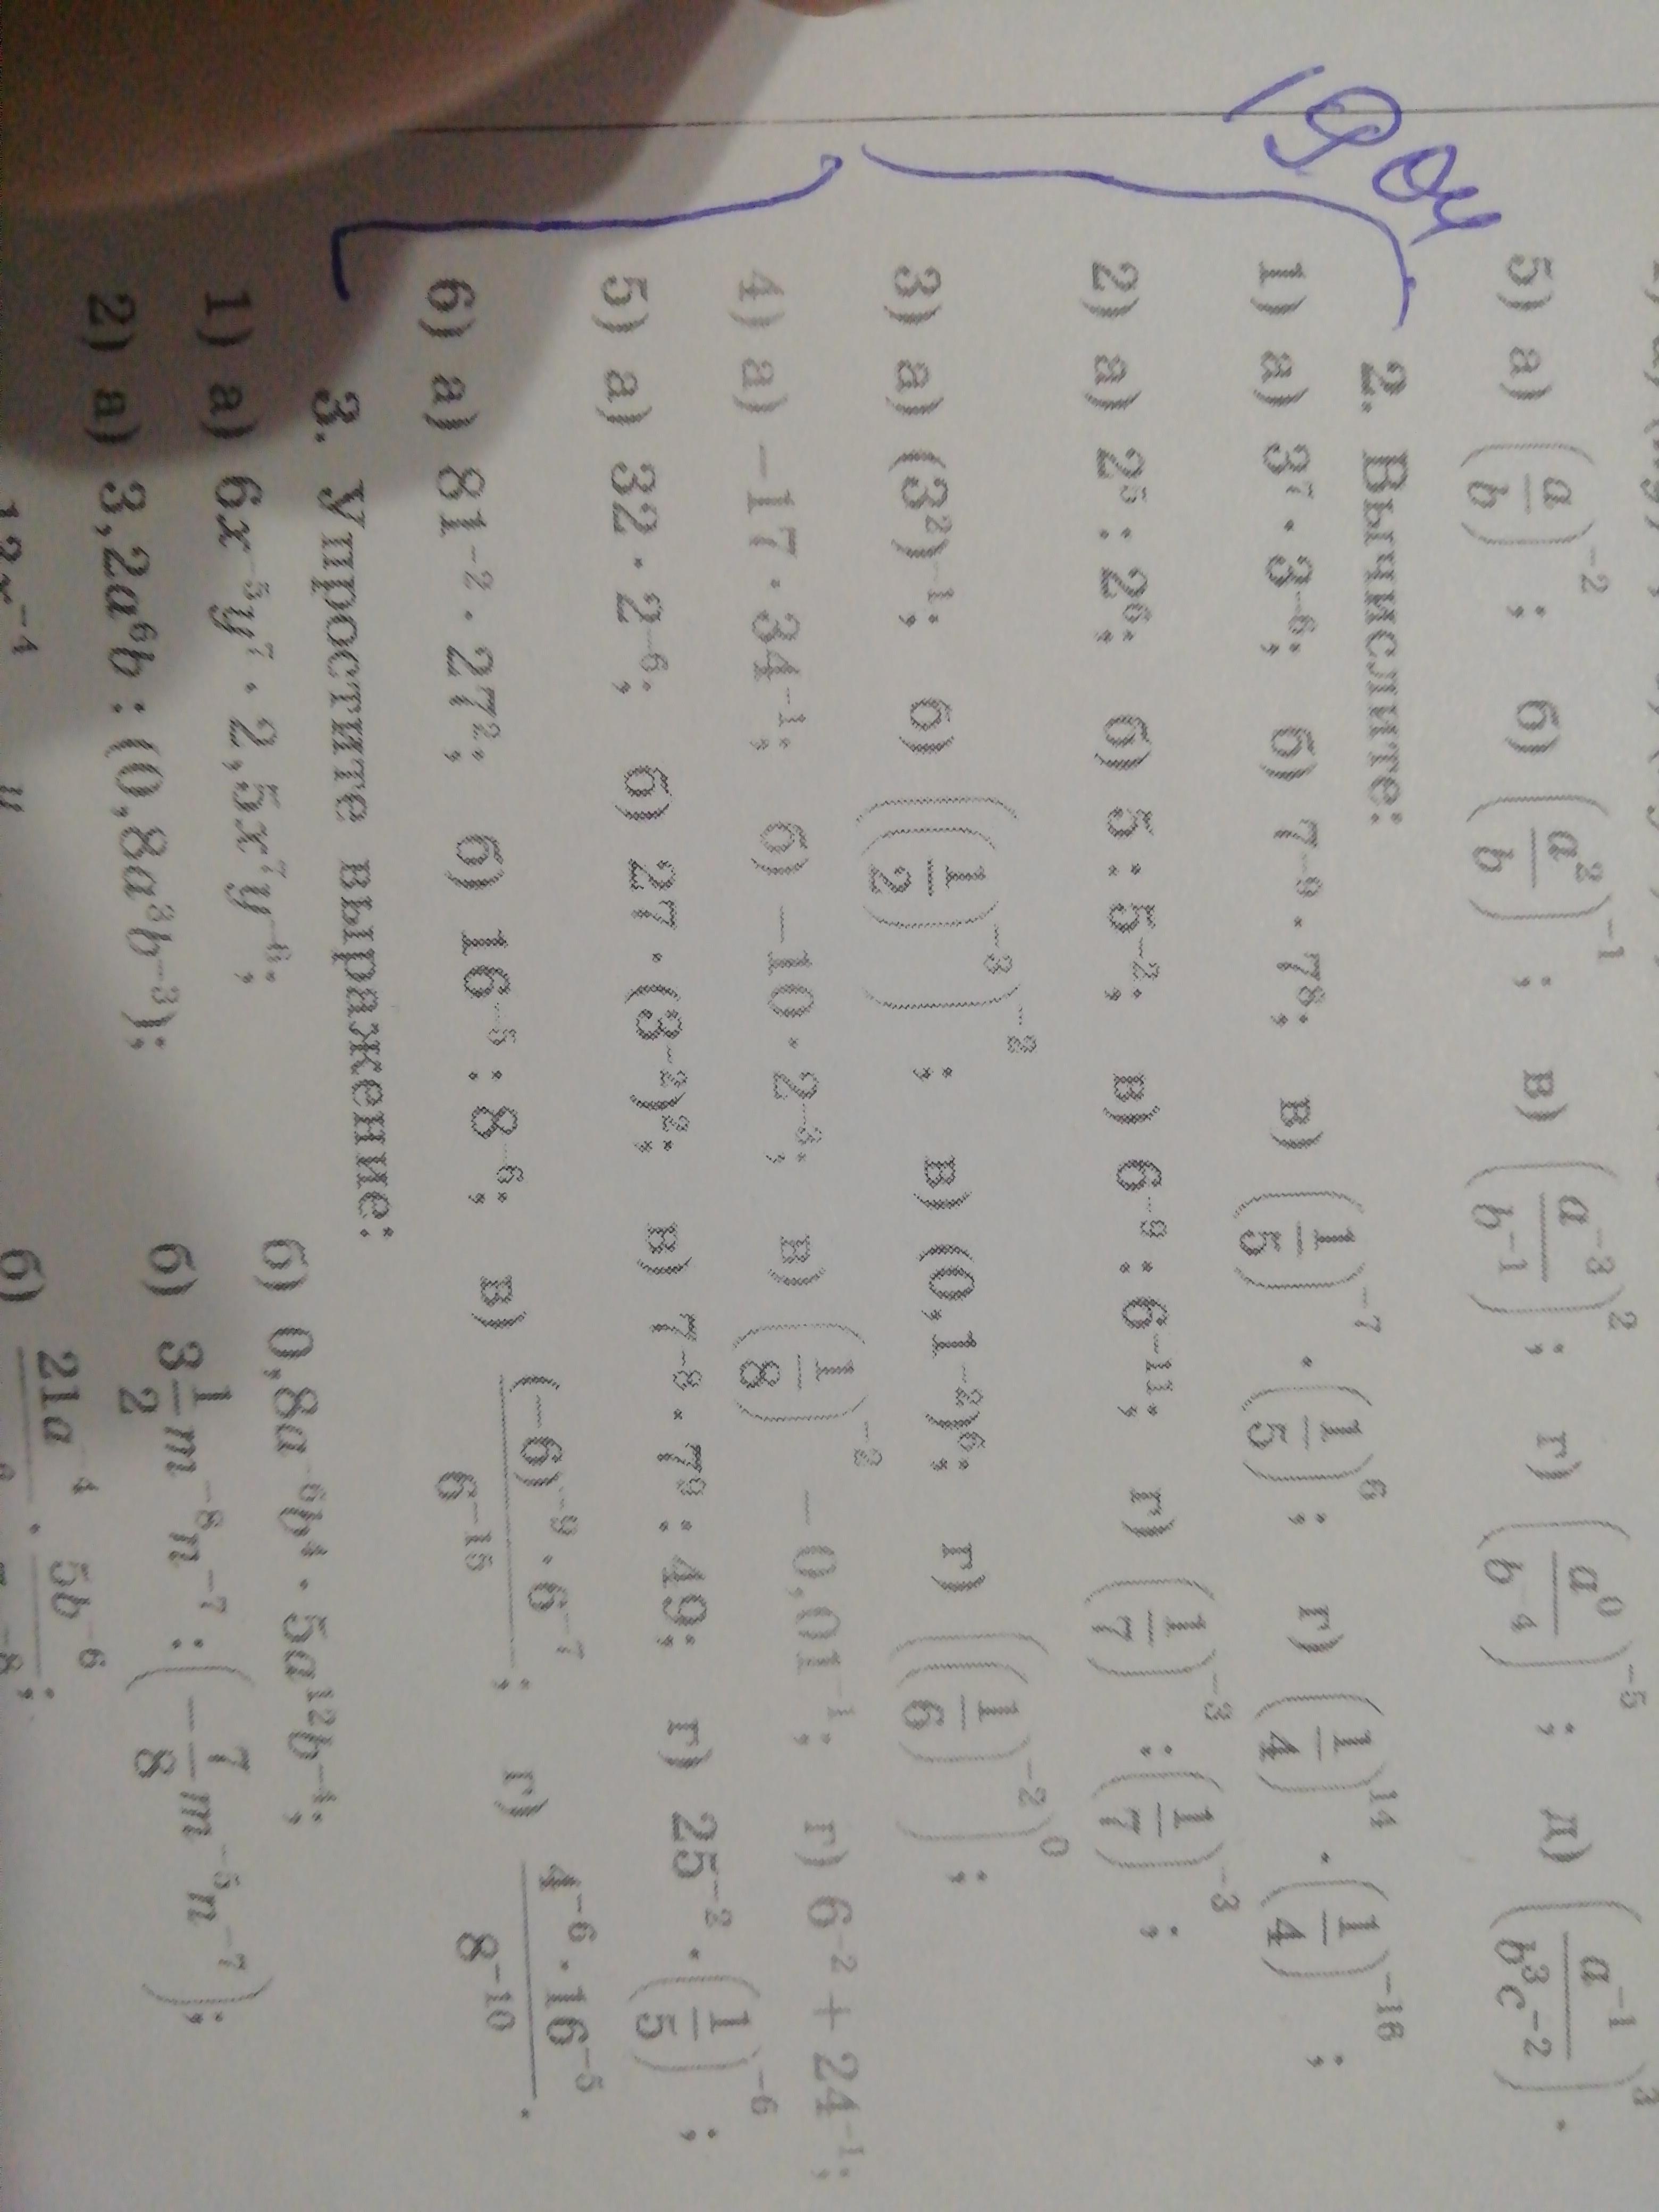 5) а) (a/b)⁻²; б) (a²/b)⁻¹; в) (a⁻³/b⁻¹)²; г) (a⁰/b⁻⁴)⁻⁵; д) (a⁻¹/b³c⁻²)³.
2. Вычислите:
1) а) 3⁷ · 3⁻⁶; б) 7⁻⁹ · 7⁸; в) (1/5)⁻⁷ · (1/5)⁶; г) (1/4)¹⁴ · (1/4)⁻¹⁶;
2) а) 2⁵ : 2⁶; б) 5 : 5⁻²; в) 6⁻⁹ : 6⁻¹¹; г) (1/7)⁻³ : (1/7)⁻³;
3) а) (3²)⁻¹; б) ((1/2)⁻³)⁻²; в) (0,1⁻²)⁶; г) ((1/6)⁻²)⁰;
4) а) −17 · 34⁻¹; б) −10 · 2⁻³; в) (1/8)⁻² − 0,01⁻¹; г) 6⁻² + 24⁻¹;
5) а) 32 · 2⁻⁶; б) 27 · (3⁻²)²; в) 7⁻⁸ · 7⁹ : 49; г) 25⁻² · (1/5)⁻⁶;
6) а) 81⁻² · 27²; б) 16⁻⁵ : 8⁻⁶; в) (−6)⁻⁹ · 6⁻⁷/6⁻¹⁵; г) 4⁻⁶ · 16⁻⁵/8⁻¹⁰.
3. Упростите выражение:
1) а) 6x⁻⁵y⁷ · 2,5x⁷y⁻⁶; б) 0,8a⁻⁶b⁴ · 5a¹²b⁻⁴;
2) а) 3,2a⁶b : (0,8a³b⁻³); б) 3 1/2 m⁻⁸n⁻⁷ : (−7/8 m⁻⁵n⁻⁷);
б) 21a⁻⁴ · 5b⁻⁶